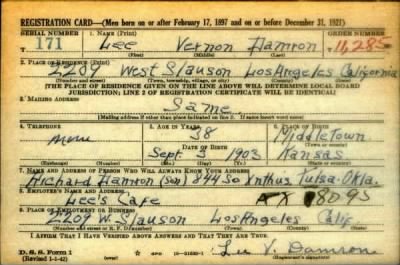 REGISTRATION CARD—(Men born on or after February 17, 1897 and on or before December 31, 1921)
SERIAL NUMBER 1. NAME (Print) ORDER NUMBER
171 Lee Vernon Damron 11,285
(First) (Middle) (Last)
2. PLACE OF RESIDENCE (Print)
2209 West Slauson Los Angeles California
(Number and street) (Town, township, village, or city) (County) (State)
[THE PLACE OF RESIDENCE GIVEN ON THE LINE ABOVE WILL DETERMINE LOCAL BOARD
JURISDICTION; LINE 2 OF REGISTRATION CERTIFICATE WILL BE IDENTICAL]
3. MAILING ADDRESS
Same
[Mailing address if other than place indicated on line 2. If same insert word same]
4. TELEPHONE 5. AGE IN YEARS 6. PLACE OF BIRTH
none 38 Middletown
DATE OF BIRTH (Town or county)
Sept. 3 1903 Kansas
(Exchange) (Number) (Mo.) (Day) (Yr.) (State or country)
7. NAME AND ADDRESS OF PERSON WHO WILL ALWAYS KNOW YOUR ADDRESS
Richard Damron (son) 844 So Xnthus Tulsa, Okla.
8. EMPLOYER'S NAME AND ADDRESS
Lee's Cafe AX 18095
9. PLACE OF EMPLOYMENT OR BUSINESS
2209 W. Slauson Los Angeles Calif
(Number and street or R. F. D. number) (Town) (County) (State)
I AFFIRM THAT I HAVE VERIFIED ABOVE ANSWERS AND THAT THEY ARE TRUE.
D. S. S. Form 1
(Revised 1-1-42) (over) GPO
Lee V. Damron